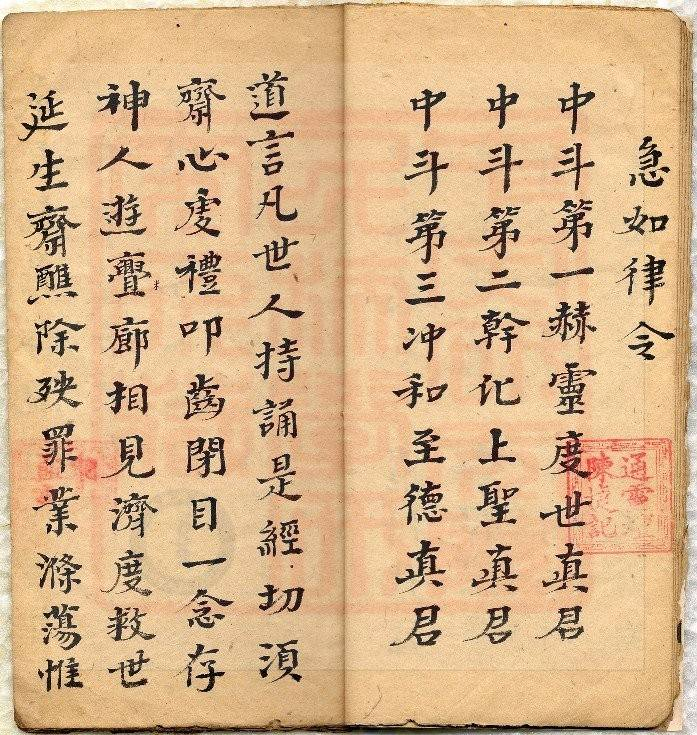 急如律令
中斗第一赫靈度世真君
中斗第二幹化上聖真君
中斗第三冲和至德真君
道言凡世人持誦是經切湏
齋心虔禮叩齒閉目一念存
神人逰亶廊相見濟度救世
延生齋醮除殃罪業滌蕩惟
通 陳 記